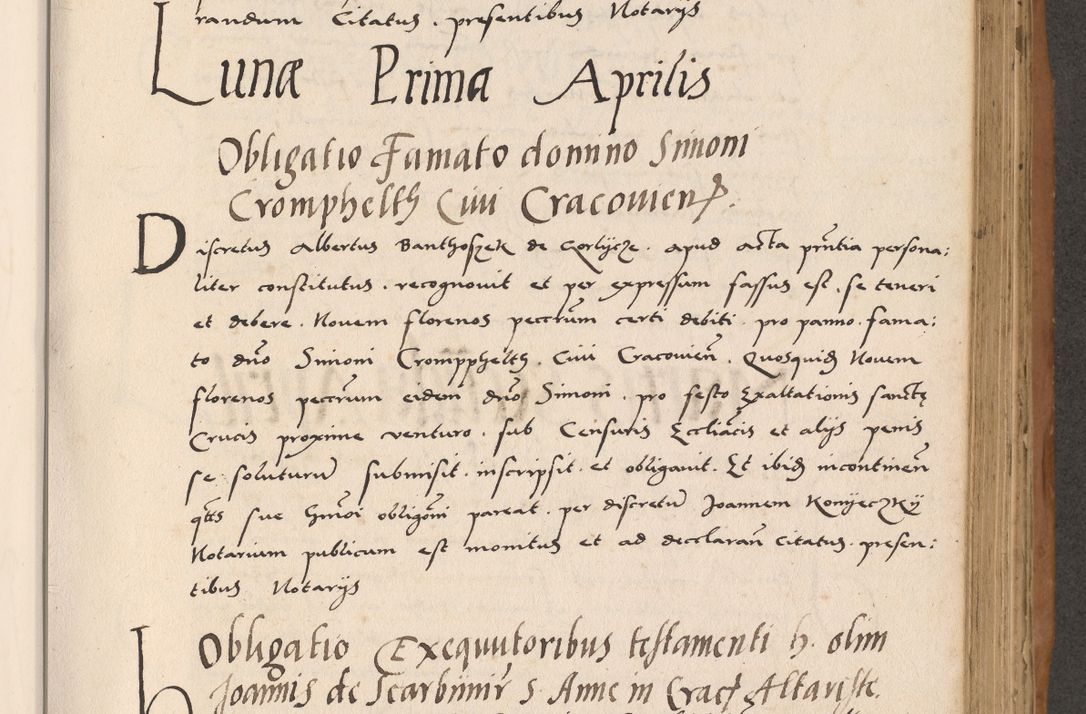 randum Citatus. presentibus Notarijs
Lunæ Prima Aprilis
Obligatio Famato domino Simoni
Cromphelth Ciui Cracouien.
Discretus Albertus Banthoszek de Gorlycze. apud acta pñtia persona:
liter constitutus. recognouit et per expressum fassus est. se teneri
et debere. Nouem florenos peccrum certi debiti. pro panno. fama:
to dño Simoni Crompphelth. Ciui Cracouieñ. Quosquidȝ Nouem
florenos peccrum eidem dño Simoni. pro festo Exaltationis sanctę
Crucis proxime venturo. sub Censuris Eccliacis et alijs penis
se soluturũ submisit. inscripsit. et obligauit. Et ibidȝ incontineñ
qtts sue hmoi obligoni pareat. per discretũ Joannem Konyeczky
Notarium publicum est monitus et ad decclarañ Citatus. presen:
tibus Notarijs
Obligatio Exequutoribus testamenti h. olim
Joannis de Scarbimir S. Anne in Crac Altariste